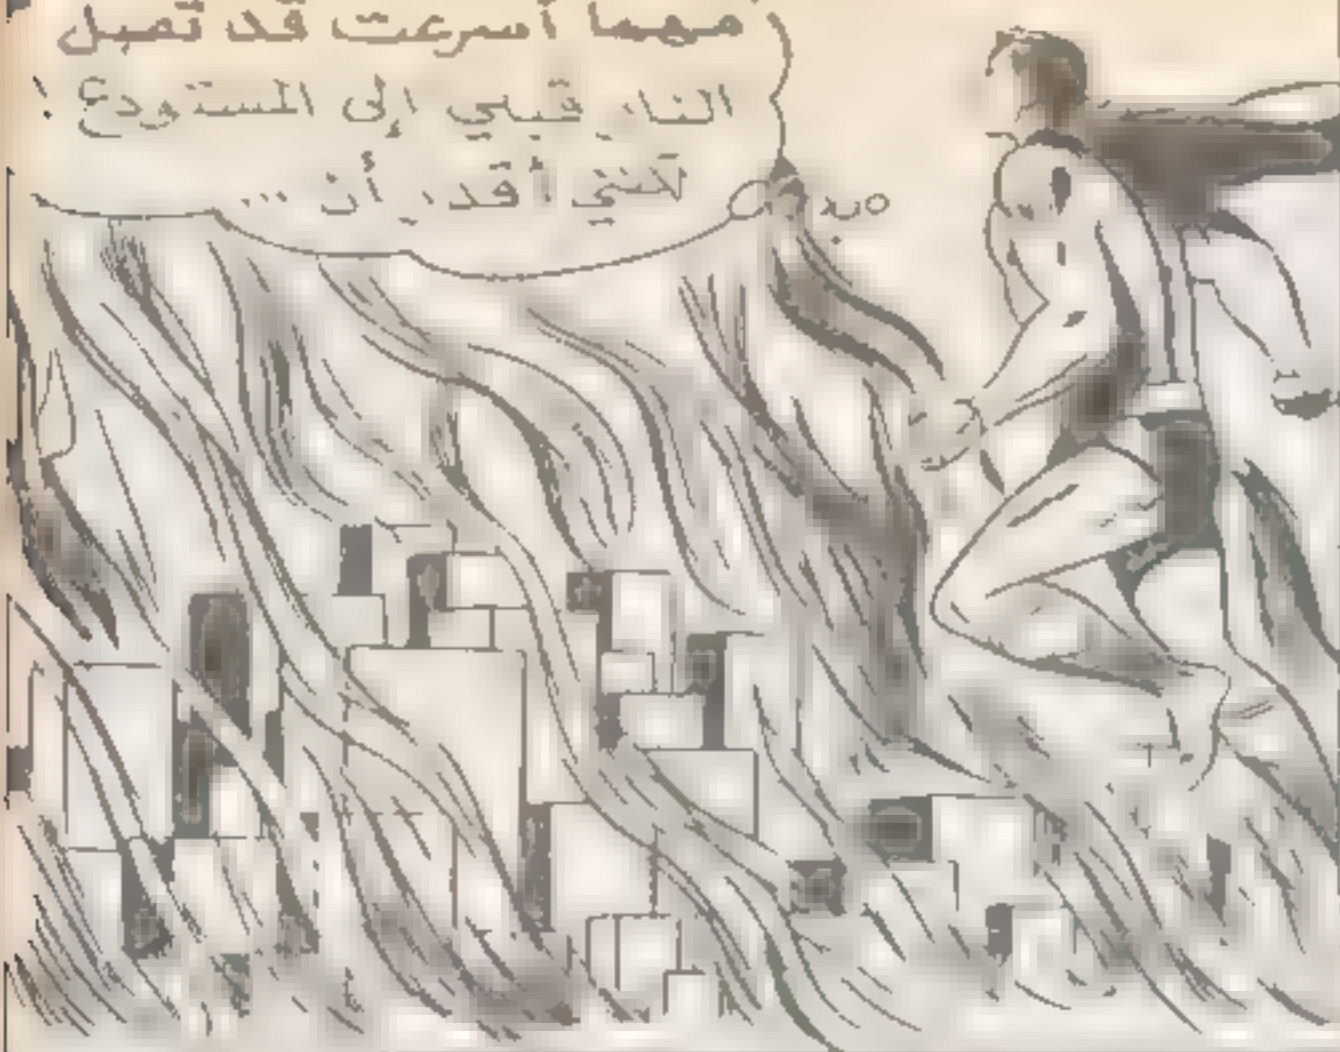 مهما أسرعت قد تصل
النار قبلي إلى المستودع !
لكنني أقدر أن ...